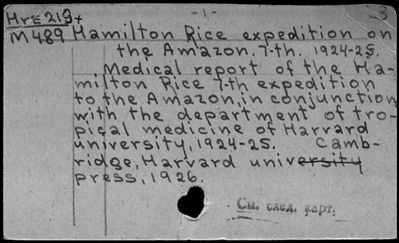 Hrε 219+ -1- 3
M489 Hamilton Rice expedition on
the Amazon. 7-th. 1924-25.
Medical report of the Ha-
milton Rice 7-th expedition
to the Amazon, in conjunction
with the department of tro-
pical medicine of Harvard
university, 1924-25. Camb-
ridge, Harvard university
press, 1926.
См. след. карт.